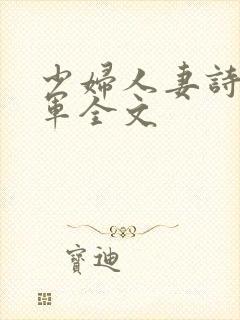 少婦人妻詩
軍全文
寶迪